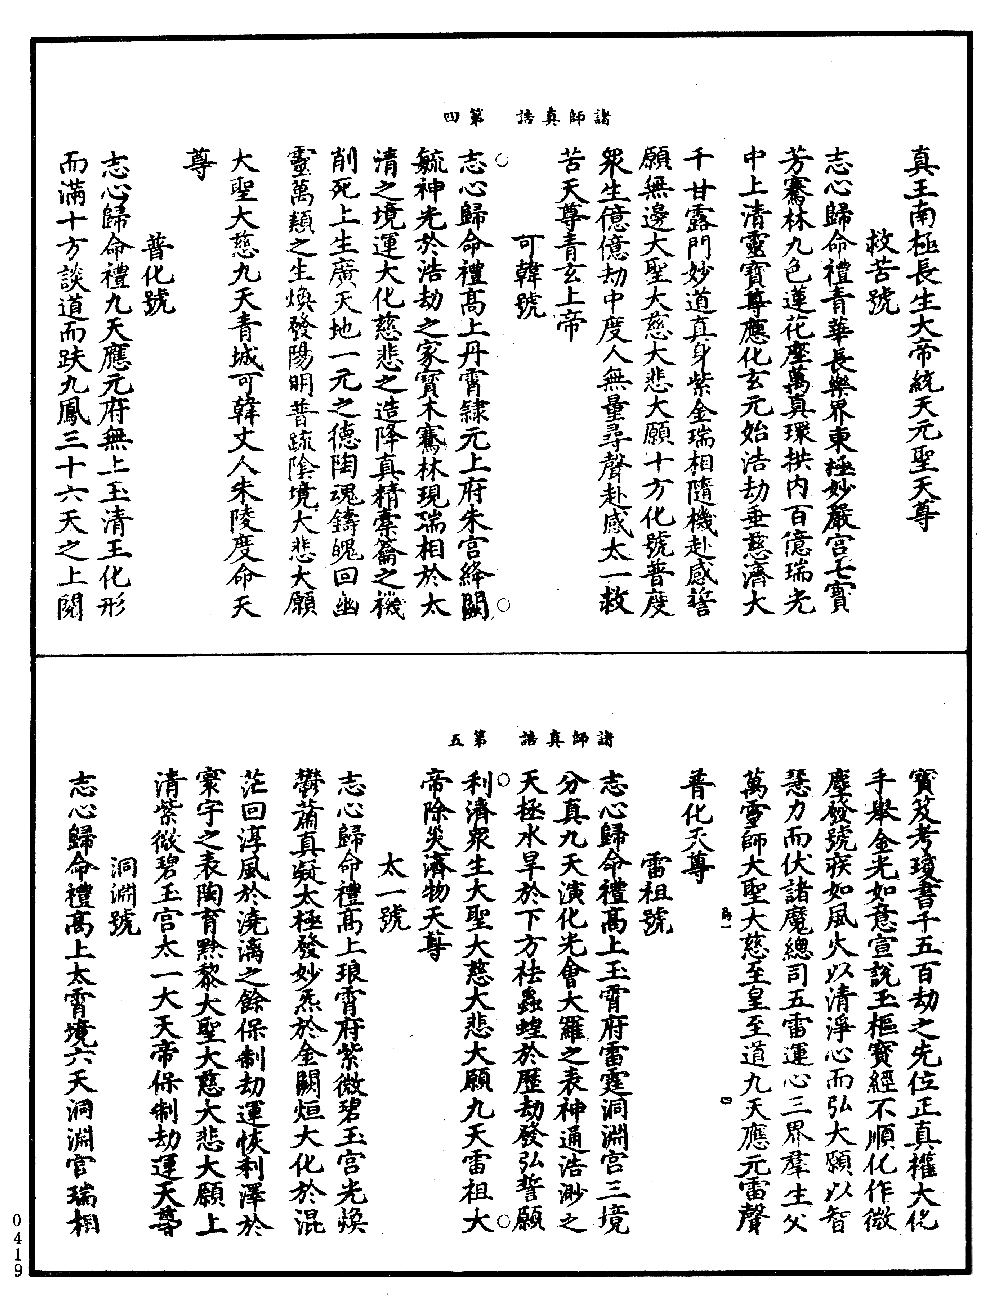 諸師真誥　第四
真王南極長生大帝統天元聖天尊
救苦號
志心歸命禮青華長樂界東極妙嚴宮七寶
芳騫林九色蓮花座萬真環拱內百億瑞光
中上清靈寶尊應化玄元始浩劫垂慈濟大
千甘露門妙道真身紫金瑞相隨機赴感誓
願無邊大聖大慈大悲大願十方化號普度
眾生億億劫中度人無量尋聲赴感太一救
苦天尊青玄上帝
可韓號
志心歸命禮高上丹霄隸元上府朱宮絳闕
毓神光於浩劫之家寶木騫林現瑞相於太
清之境運大化慈悲之造降真精橐籥之機
削死上生廣天地一元之德陶魂鑄魄回幽
靈萬類之生煥發陽明普疏陰境大悲大願
大聖大慈九天青城可韓丈人朱陵度命天
尊
普化號
志心歸命禮九天應元府無上玉清王化形
而滿十方談道而趺九鳳三十六天之上閱
諸師真誥　第五
寶笈考瓊書千五百劫之先位正真權大化
手舉金光如意宣說玉樞寶經不順化作微
塵發號疾如風火以清淨心而弘大願以智
慧力而伏諸魔總司五雷運心三界羣生父
萬靈師大聖大慈至皇至道九天應元雷聲
普化天尊
雷祖號
志心歸命禮高上玉霄府雷霆洞淵宮三境
分真九天演化光會大羅之表神通浩渺之
天極水旱於下方祛蟲蝗於歷劫發弘誓願
利濟眾生大聖大慈大悲大願九天雷祖大
帝除災濟物天尊
太一號
志心歸命禮高上琅霄府紫微碧玉宮光煥
鬱蕭真凝太極發妙炁於金闕烜大化於混
茫回淳風於澆漓之餘保制劫運恢利澤於
寰宇之表陶育黔黎大聖大慈大悲大願上
清紫微碧玉宮太一大天帝保制劫運天尊
洞淵號
志心歸命禮高上太霄境六天洞淵宮瑞相
0419